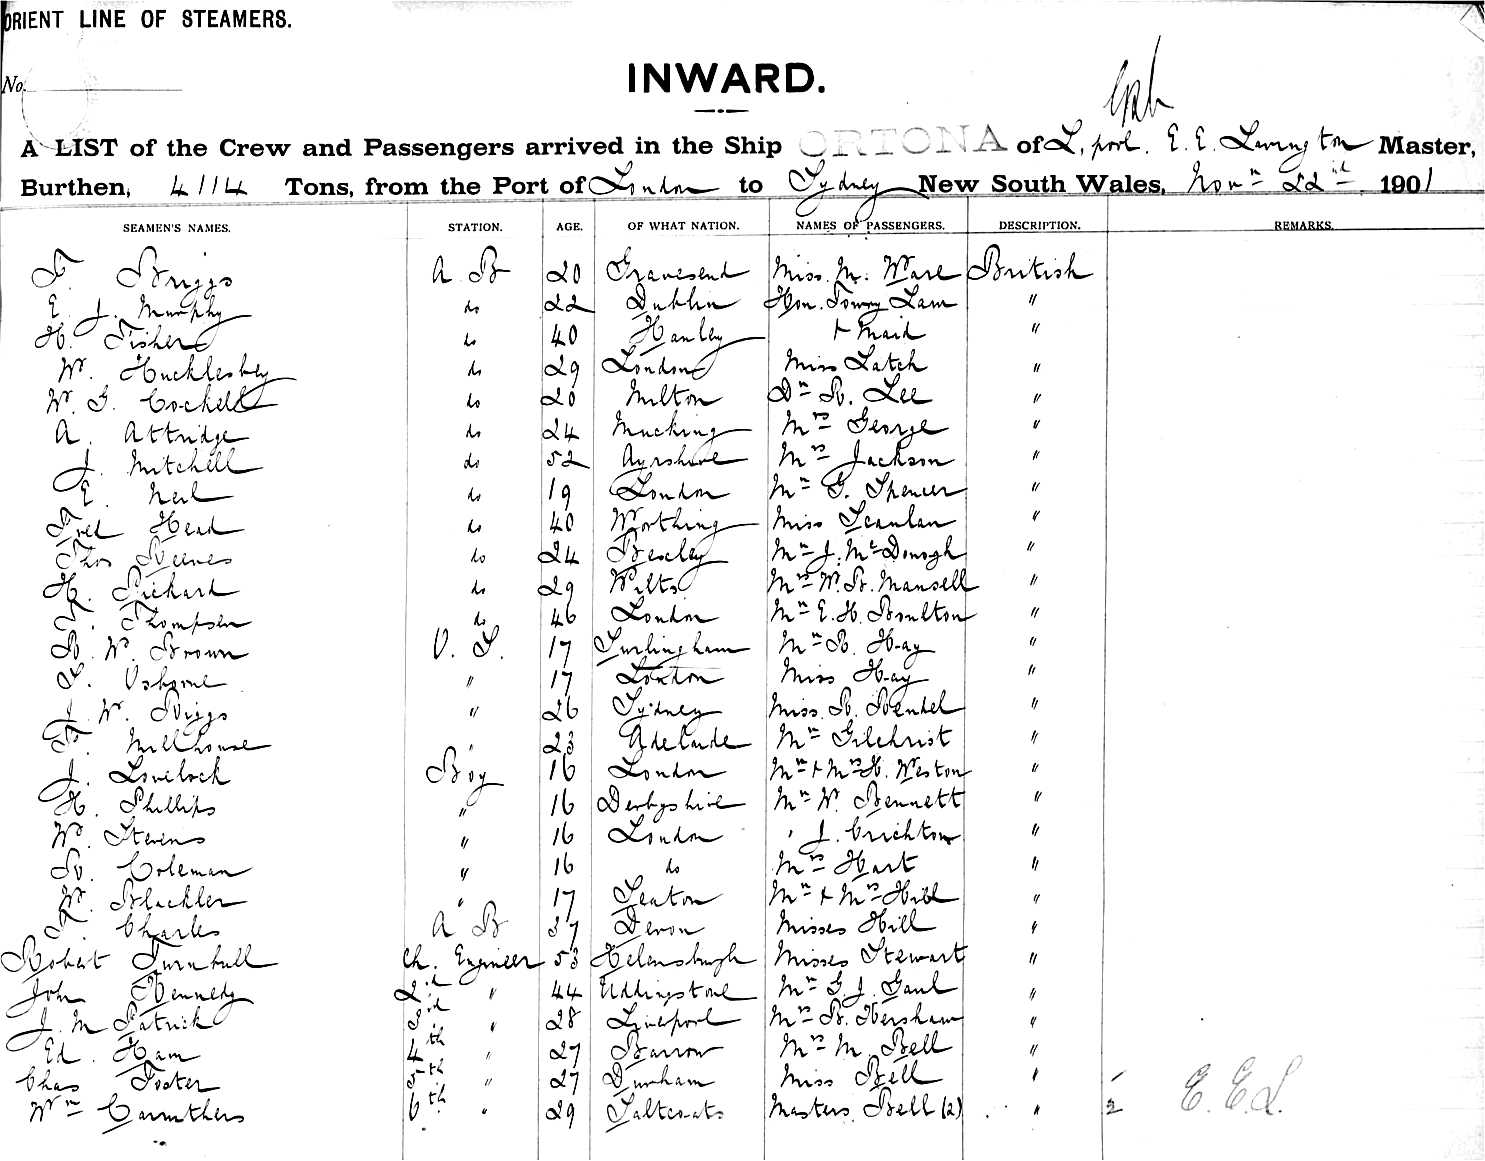 ORIENT LINE OF STEAMERS.
No.
INWARD.
A LIST of the Crew and Passengers arrived in the Ship ORTONA of L.pool. E. E. Lavington Master,
Burthen, 4114 Tons, from the Port of London to Sydney New South Wales, Novr 22nd 1901
SEAMEN'S NAMES. STATION. AGE. OF WHAT NATION. NAMES OF PASSENGERS. DESCRIPTION. REMARKS.
F. Briggs A B 20 Gravesend Miss. M. Ware British
E. J. Murphy do 22 Dublin Hon. Towry Law "
H. Fisher do 40 Hanley + Maid "
W. Hucklesbey do 29 London Miss Latch "
W. G. Cockell do 20 Milton Dr R. Lee "
A. Attridge do 24 Mucking Mrs George "
J. Mitchell do 52 Ayrshire Mrs Jackson "
E. Neil do 19 London Mr G. Spencer "
Fred Head do 40 Worthing Miss Scanlan "
Thos Reeves do 24 Bexley Mr J. McDonogh "
H. Pickard do 29 Wilts Mrs W. B. Mansell "
F. Thompson do 46 London Mr E. H. Boulton "
B. W. Brown O. S. 17 Surlingham Mr R. Hay "
F. Osborne " 17 London Miss Hay "
J. W. Biggs " 26 Sydney Miss. R. Bendel "
F. Millhouse " 23 Adelaide Mr Gilchrist "
J. Lovelock Boy 16 London Mr + Mrs H. Weston "
H. Phillips " 16 Derbyshire Mr W. Bennett "
W. Stevens " 16 London " J. Crichton "
R. Coleman " 16 do Mrs Hart "
W. Blackler " 17 Seaton Mr + Mrs Hill "
F. Charles A B 37 Devon Misses Hill "
Robert Turnbull Ch. Engineer 53 Helensburgh Misses Stewart "
John Kennedy 2nd " 44 Uddingstone Mr G J. Gaul "
J. M Patrick 3rd " 28 Liverpool Mrs B. Hersham "
Ed. Ham 4th " 27 Barrow Mrs M. Bell "
Chas Foster 5th " 27 Durham Miss Bell "
Wm Carruthers 6th " 29 Saltcoats Masters. Bell (2) " 2 E. E. L.